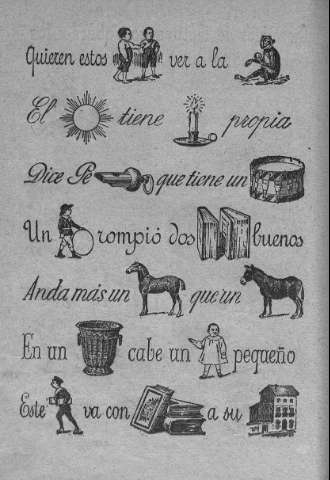 Quieren estos ver a la
El tiene propia
Dice Pe que tiene un
Un rompió dos buenos
Anda más un que un
En un cabe un pequeño
Este va con a su